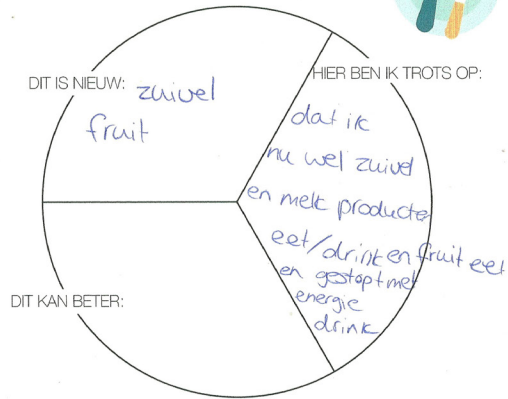 DIT IS NIEUW: zuivel
fruit
HIER BEN IK TROTS OP:
dat ik
nu wel zuivel
en melk producte
eet/drink en fruit eet
en gestopt met
energie
drink
DIT KAN BETER: